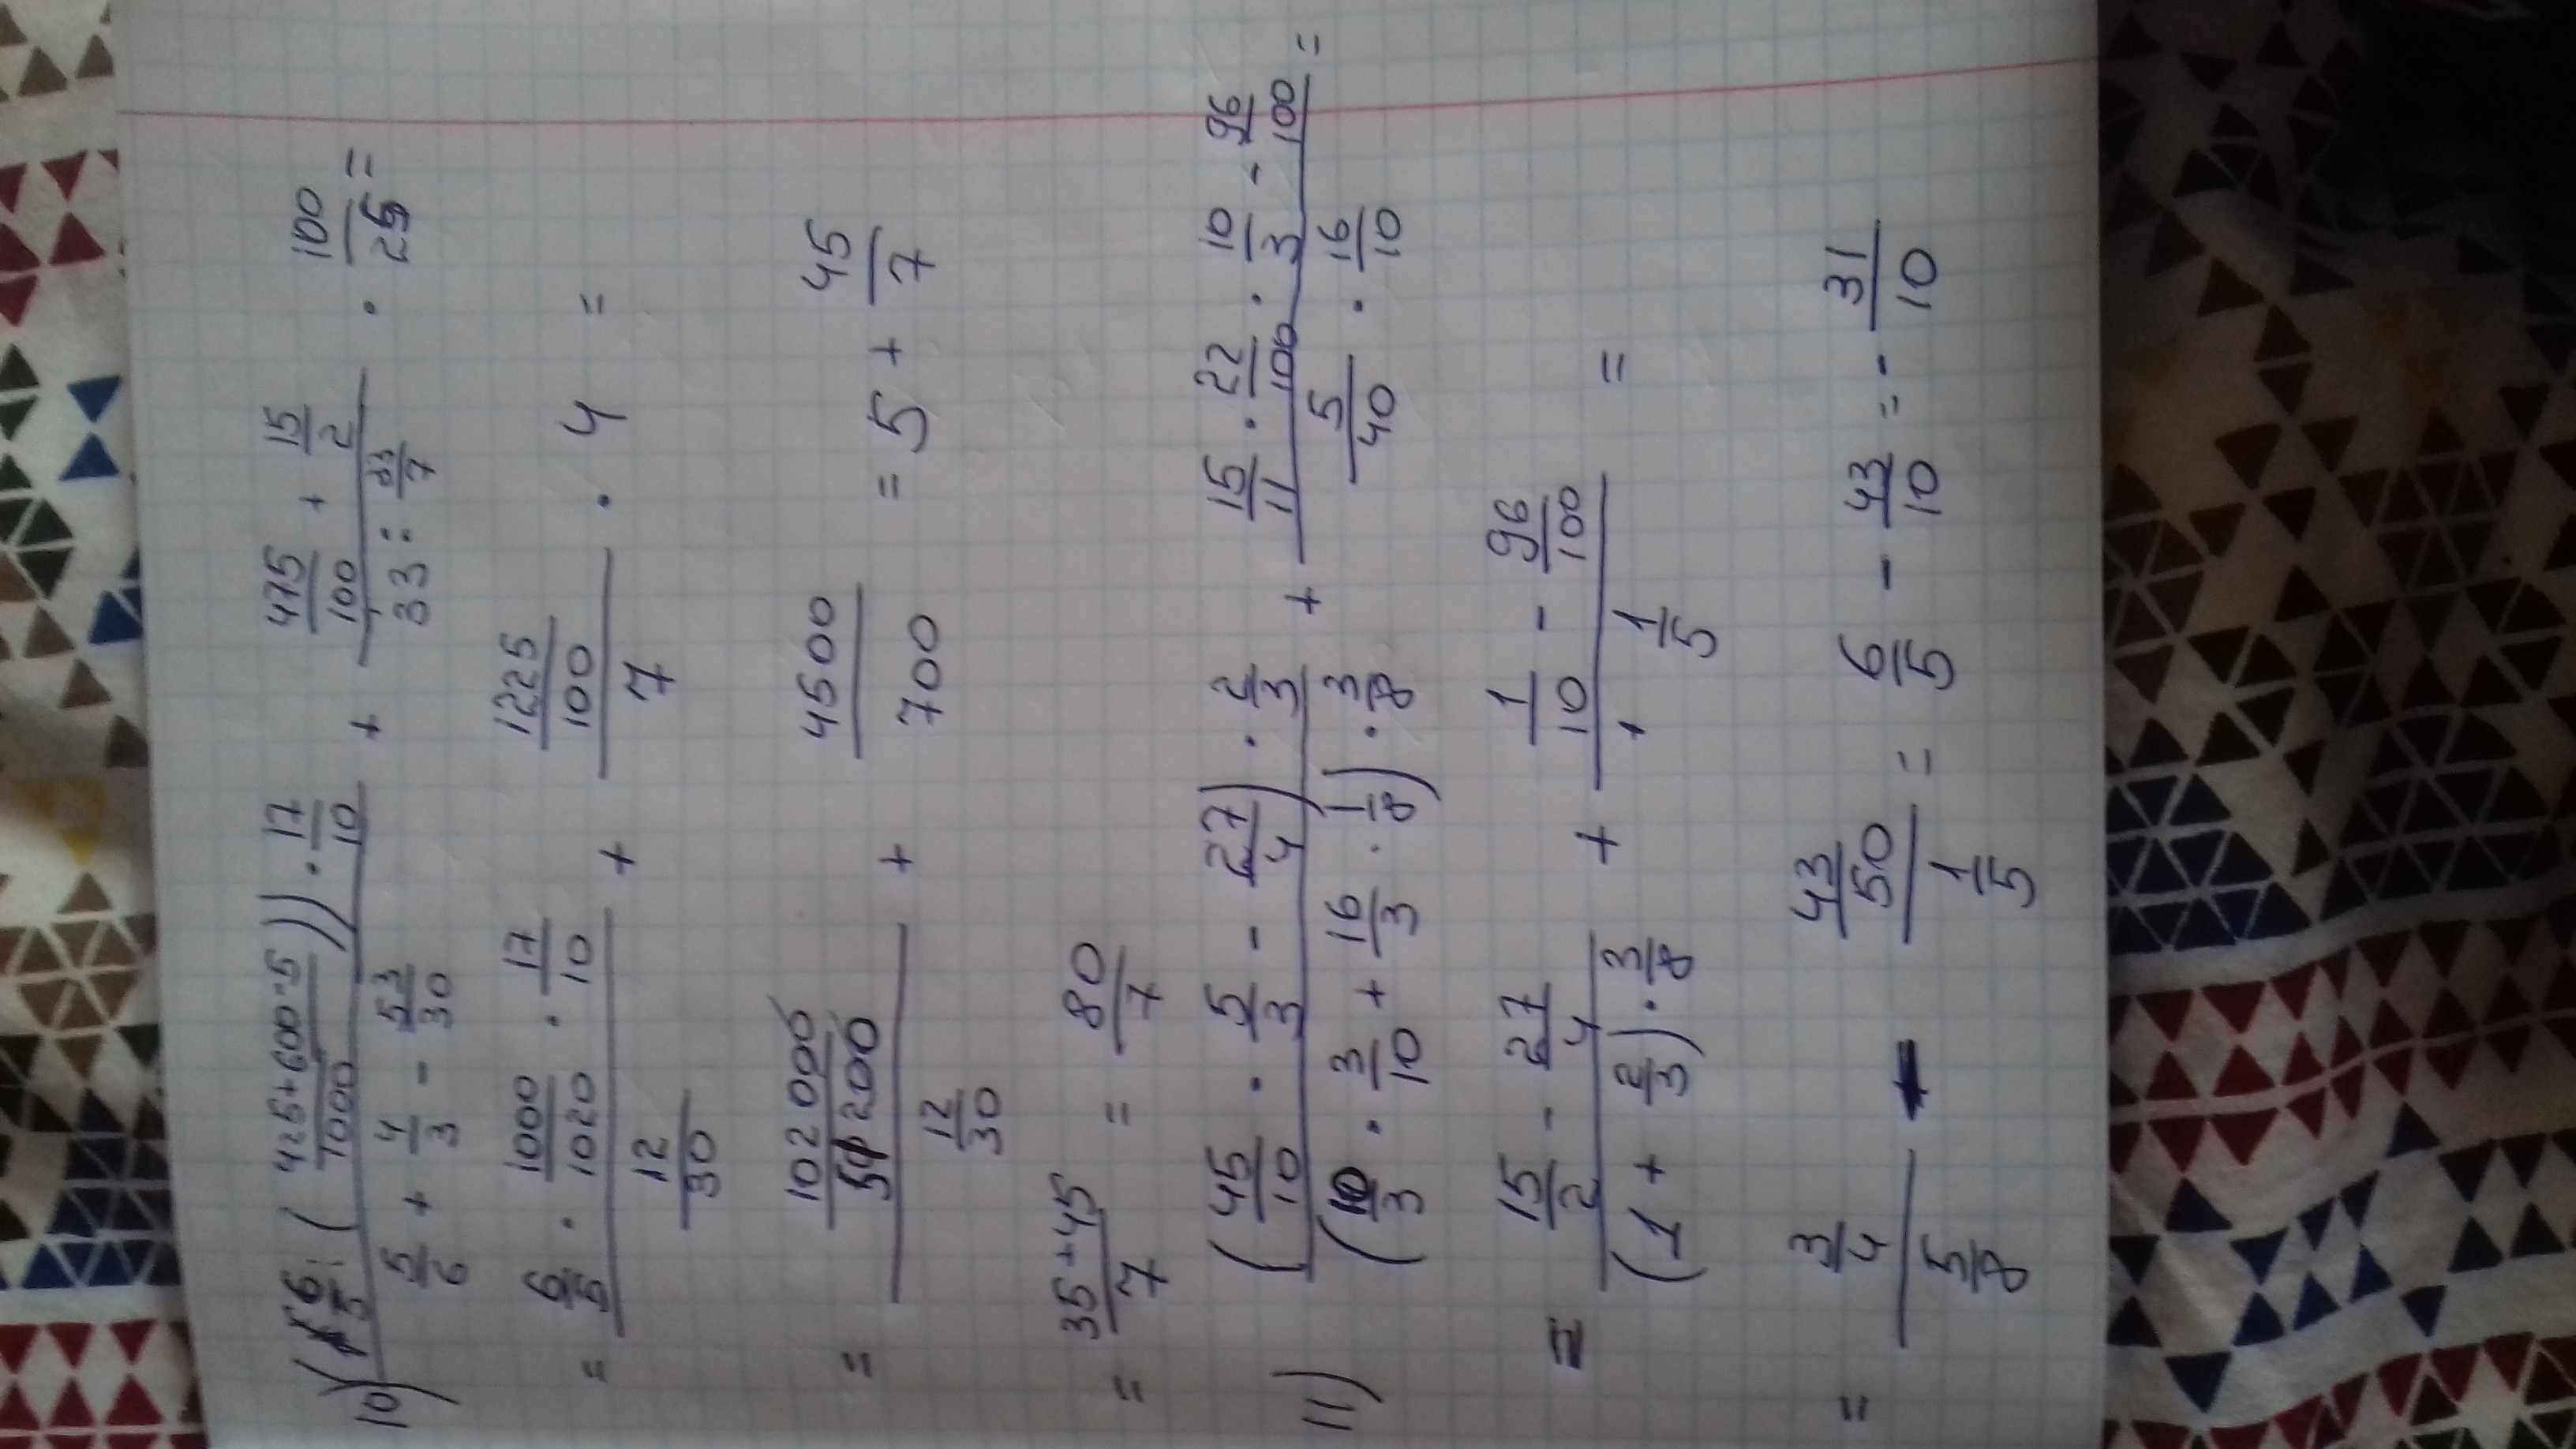 10) ((6/5 : ((425+600-5)/1000)) · 17/10)/(5/6 + 4/3 - 53/30) + (475/100 + 15/2)/(33 : 33/7) · 100/25 =
= (6/5 · 1000/1020 · 17/10)/(12/30) + (1225/100)/7 · 4 =
= (102000/51200)/(12/30) + 4500/700 = 5 + 45/7
= (35+45)/7 = 80/7
11) ((45/10 · 5/3 - 27/4) · 2/3)/((10/3 · 3/10 + 16/3 · 1/8) · 3/8) + (15/11 · 22/100 · 10/3 - 96/100)/(5/40 · 16/10) =
= (15/2 - 27/4)/((1 + 2/3) · 3/8) + (1/10 - 96/100)/(1/5) =
= (3/4)/(5/8) - (43/50)/(1/5) = 6/5 - 43/10 = - 31/10